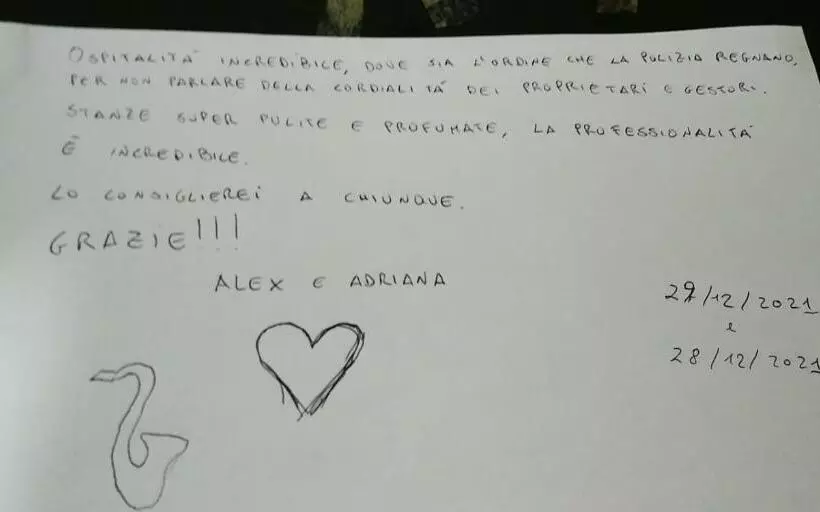 OSPITALITÀ INCREDIBILE, DOVE SIA L'ORDINE CHE LA PULIZIA REGNANO,
PER NON PARLARE DELLA CORDIALITÀ DEI PROPRIETARI E GESTORI.
STANZE SUPER PULITE E PROFUMATE, LA PROFESSIONALITÀ
È INCREDIBILE.
LO CONSIGLIEREI A CHIUNQUE.
GRAZIE!!!
ALEX E ADRIANA
/12/2021
e
28/12/2021